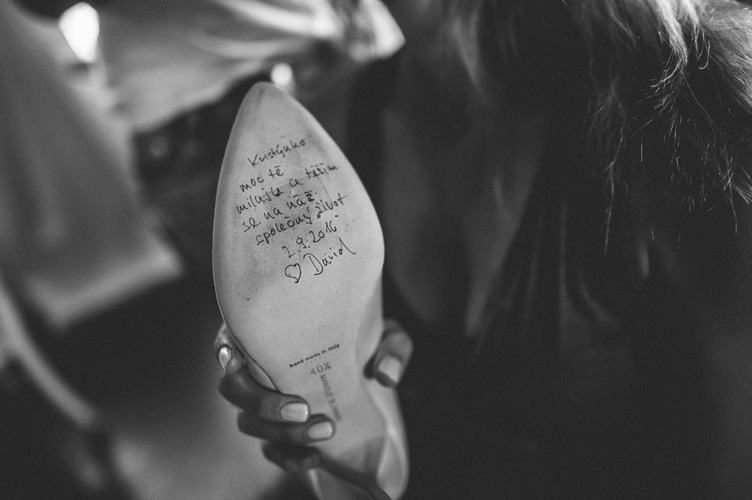 Kristýnko
moc tě
miluju a těším
se na náš
společný život
2.9.2016
♡ David
hand made in Italy
40X